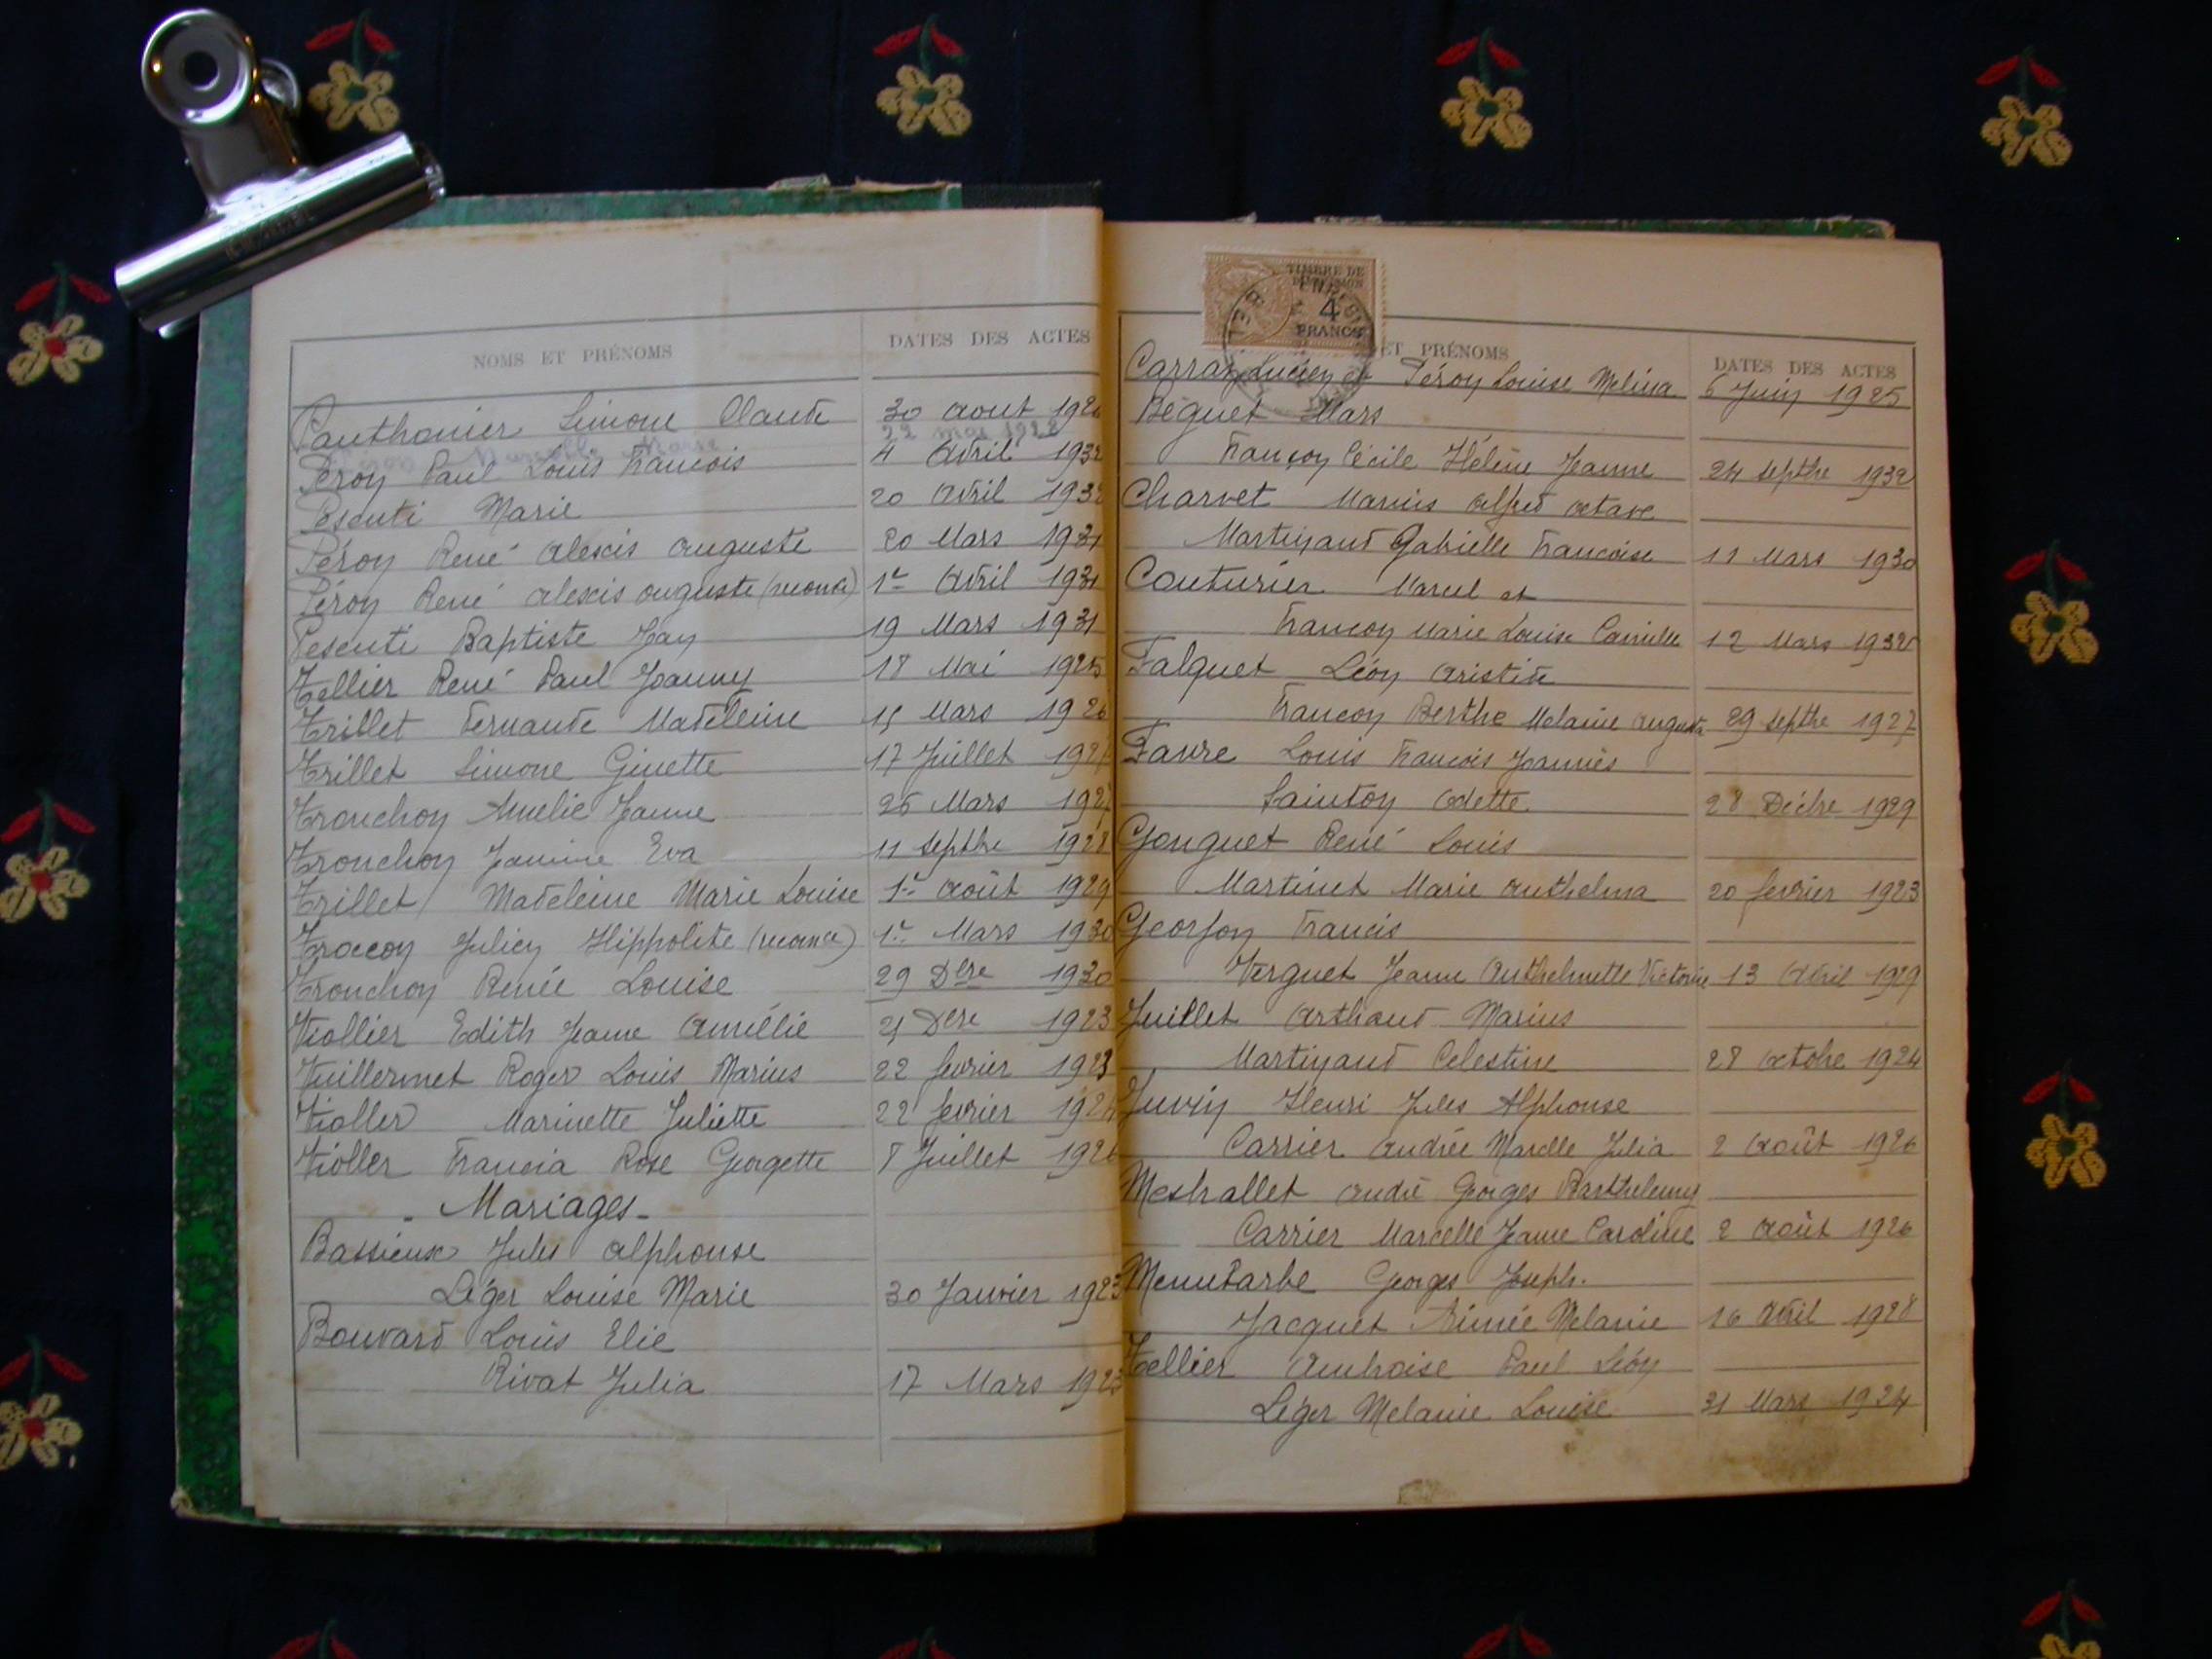 NOMS ET PRÉNOMS DATES DES ACTES
Panthonier Simone Claude 30 août 1926
22 mai 1928
Péroy Paul Louis François 4 Avril 1932
Pesenti Marie 20 Avril 1932
Péroy René Alexis Auguste 20 Mars 1931
Péroy René Alexis Auguste 1er Avril 1931
Pesenti Baptiste Jean 19 Mars 1931
Tellier René Paul Joanny 18 Mai 1925
Trillet Fernande Madeleine 15 Mars 1926
Trillet Simone Ginette 17 Juillet
Tronchon Amelie Jeanne 26 Mars 1927
Tronchon Janine Eva 11 septbre 1928
Trillet Madeleine Marie Louise 1er Août 1929
Traccon Julien Hippolite 1er Mars 1930
Tronchon Renée Louise 29 Dbre 1930
Viollier Edith Jeanne Amélie 21 Dcre 1923
Vuillermet Roger Louis Marius 22 fevrier 1923
Violler Marinette Juliette 22 fevrier 1924
Violler Francia Rose Georgette 8 Juillet 1926
- Mariages -
Bassieux Jules Alphonse
Léger Louise Marie 30 Janvier 1923
Bouvard Louis Elie
Rivat Julia 17 Mars 1923
TIMBRE DE
DIMENSION
4
FRANCS
ET PRÉNOMS DATES DES ACTES
Carraz Lucien et Péroy Louise Melina 6 Juin 1925
Béguet Mars
Françon Cécile Hélène Jeanne 24 septbre 1932
Charvet Marius Alfred Octave
Martinand Gabrielle Françoise 11 Mars 1930
Couturier Marcel et
Françon Marie Louise Camille 12 Mars 1932
Falquet Léon Aristide
Françon Berthe Melanie Augusta 29 septbre 1927
Favre Louis François Joannès
Sainton Odette 28 Décbre 1929
Gonguet René Louis
Martinet Marie Anthelma 20 fevrier 1923
Georjon Francis
Verguet Jeanne Anthelmette Victorine 13 Avril 1929
Juillet Arthaud Marius
Martinand Celestine 28 octobre 1924
Juvin Henri Jules Alphonse
Carrier Andrée Marcelle Julia 2 Août 1926
Mestrallet André Georges Barthelemy
Carrier Marcelle Jeanne Caroline 2 Août 1926
Menubarbe Georges Joseph.
Jacquet Aimée Melanie 16 Avril 1928
Tellier Ambroise Paul Léon
Léger Melanie Louise 31 Mars 1924